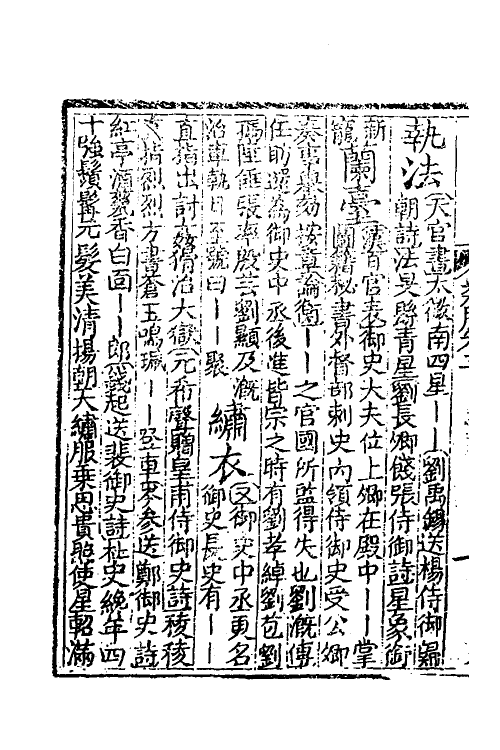 執法 天官書太微南四星｜｜ 劉禹錫送楊侍御歸
朝詩法星懸青星劉長卿餞張侍御詩星象銜
新寵 蘭臺 漢百官表御史大夫位上卿在殿中｜｜掌
圖籍秘書外督部刺史內領侍御史受公卿
奏事舉劾按章論衡｜｜之官國所監得失也劉溉傳
任昉選爲御史中丞後進皆宗之時有劉孝綽劉苞劉
孺陸倕張率殷芸劉顯及溉
治車執日至號曰｜｜聚 繡衣 又御史中丞更名
御史長史有｜｜
直指出討姦猾治大獄 元希聲贈皇甫侍御史詩稜稜
指烈烈方書蒼玉鳴珮｜｜登車岑參送鄭御史詩
紅亭酒甕香白面｜｜郎 義起送裴御史詩柱史纔年四
十強鬚髯元髮美清揚朝天繡服乘恩貴照使星軺滿